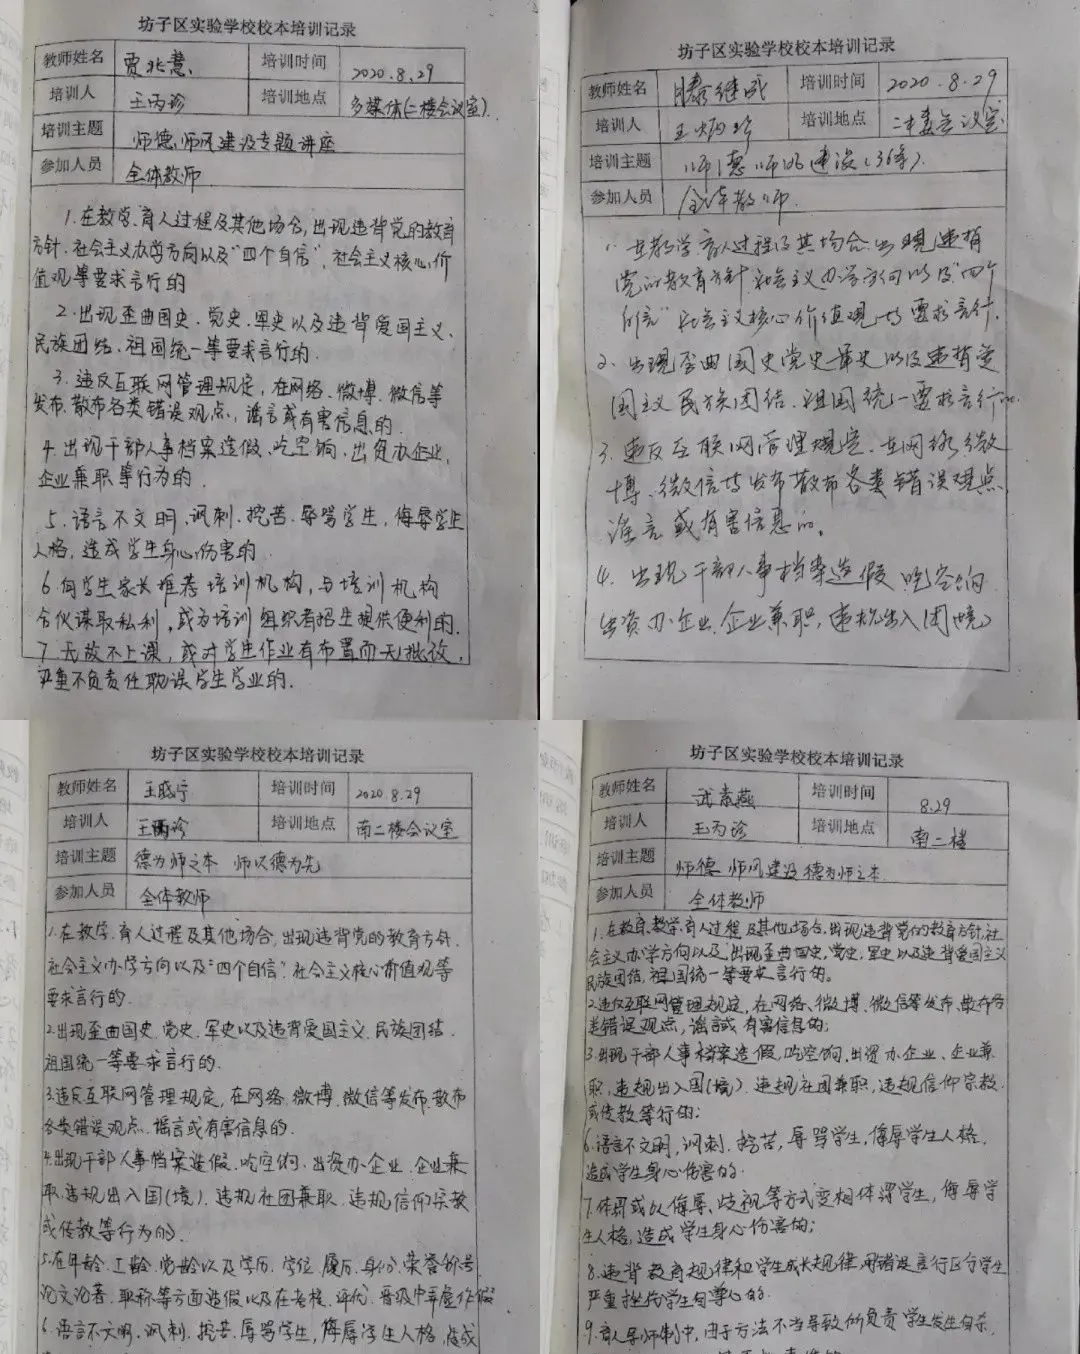 坊子区实验学校校本培训记录
教师姓名 贾兆慧 培训时间 2020.8.29
培训人 王丙珍 培训地点 多媒体(二楼会议室).
培训主题 师德师风建设专题讲座
参加人员 全体教师
1.在教学、育人过程及其他场合,出现违背党的教育
方针、社会主义办学方向以及“四个自信”、社会主义核心价
值观等要求言行的
2.出现歪曲国史、党史、军史以及违背爱国主义、
民族团结、祖国统一等要求言行的.
3.违反互联网管理规定,在网络、微博、微信等
发布、散布各类错误观点,谣言或有害信息的.
4.出现干部人事档案造假、吃空饷、出资办企业,
企业兼职等行为的.
5.语言不文明、讽刺、挖苦、辱骂学生,侮辱学生
人格,造成学生身心伤害的.
6.向学生家长推荐培训机构,与培训机构
合伙谋取私利,或为培训组织者招生提供便利的.
7.无故不上课,或对学生作业有布置而无批改,
严重不负责任耽误学生学业的.
坊子区实验学校校本培训记录
教师姓名 滕继成 培训时间 2020.8.29
培训人 王炳珍 培训地点 二楼会议室
培训主题 师德师风建设(36条).
参加人员 全体教师.
1.在教学育人过程及其场合.出现违背
党的教育方针社会主义办学方向以及“四个
自信”社会主义核心价值观等要求言行.
2、出现歪曲国史党史军史以及违背爱
国主义民族团结、祖国统一要求言行的.
3.违反互联网管理规定、在网络微
博、微信等发布散布各类错误观点
谣言或有害信息的。
4.出现干部人事档案造假吃空饷
出资办企业、企业兼职,违规出入国(境)
坊子区实验学校校本培训记录
教师姓名 王晓宁 培训时间 2020.8.29
培训人 王丙珍 培训地点 南二楼会议室
培训主题 德为师之本 师以德为先
参加人员 全体教师
1.在教学、育人过程及其他场合,出现违背党的教育方针、
社会主义办学方向以及“四个自信”.社会主义核心价值观等
要求言行的.
2.出现歪曲国史、党史、军史以及违背爱国主义、民族团结、
祖国统一等要求言行的.
3.违反互联网管理规定,在网络、微博、微信等发布、散布
各类错误观点、谣言或有害信息的.
4.出现干部人事档案造假、吃空饷、出资办企业、企业兼
职、违规出入国(境)、违规社团兼职、违规信仰宗教
或传教等行为的.
5.在年龄、工龄、党龄以及学历、学位、履历、身份、荣誉称号
论文论著、职称等方面造假以及在考核、评优、晋级中弄虚作假
6.语言不文明、讽刺、挖苦、辱骂学生,侮辱学生人格,造成
坊子区实验学校校本培训记录
教师姓名 武素燕 培训时间 8.29
培训人 王丙珍 培训地点 南二楼
培训主题 师德师风建设德为师之本
参加人员 全体教师
1.在教育、教学、育人过程及其他场合,出现违背党的教育方针,社
会主义办学方向以及出现歪曲国史,党史,军史以及违背爱国主义
民族团结,祖国统一等要求言行的.
2.违反互联网管理规定,在网络、微博、微信等发布、散布各
类错误观点,谣言或有害信息的;
3.出现干部人事档案造假,吃空饷、出资办企业、企业兼
职,违规出入国(境)、违规社团兼职,违规信仰宗教
或传教等行的;
6.语言不文明,讽刺、挖苦,辱骂学生,侮辱学生人格,
造成学生身心伤害的.
7.体罚或以侮辱、歧视等方式变相体罚学生,侮辱学
生人格,造成学生身心伤害的;
8.违背教育规律和学生成长规律,用错误言行区分学生
严重挫伤学生自尊心的.
9.育人导师制中,由于方法不当导致所负责学生发生自杀、